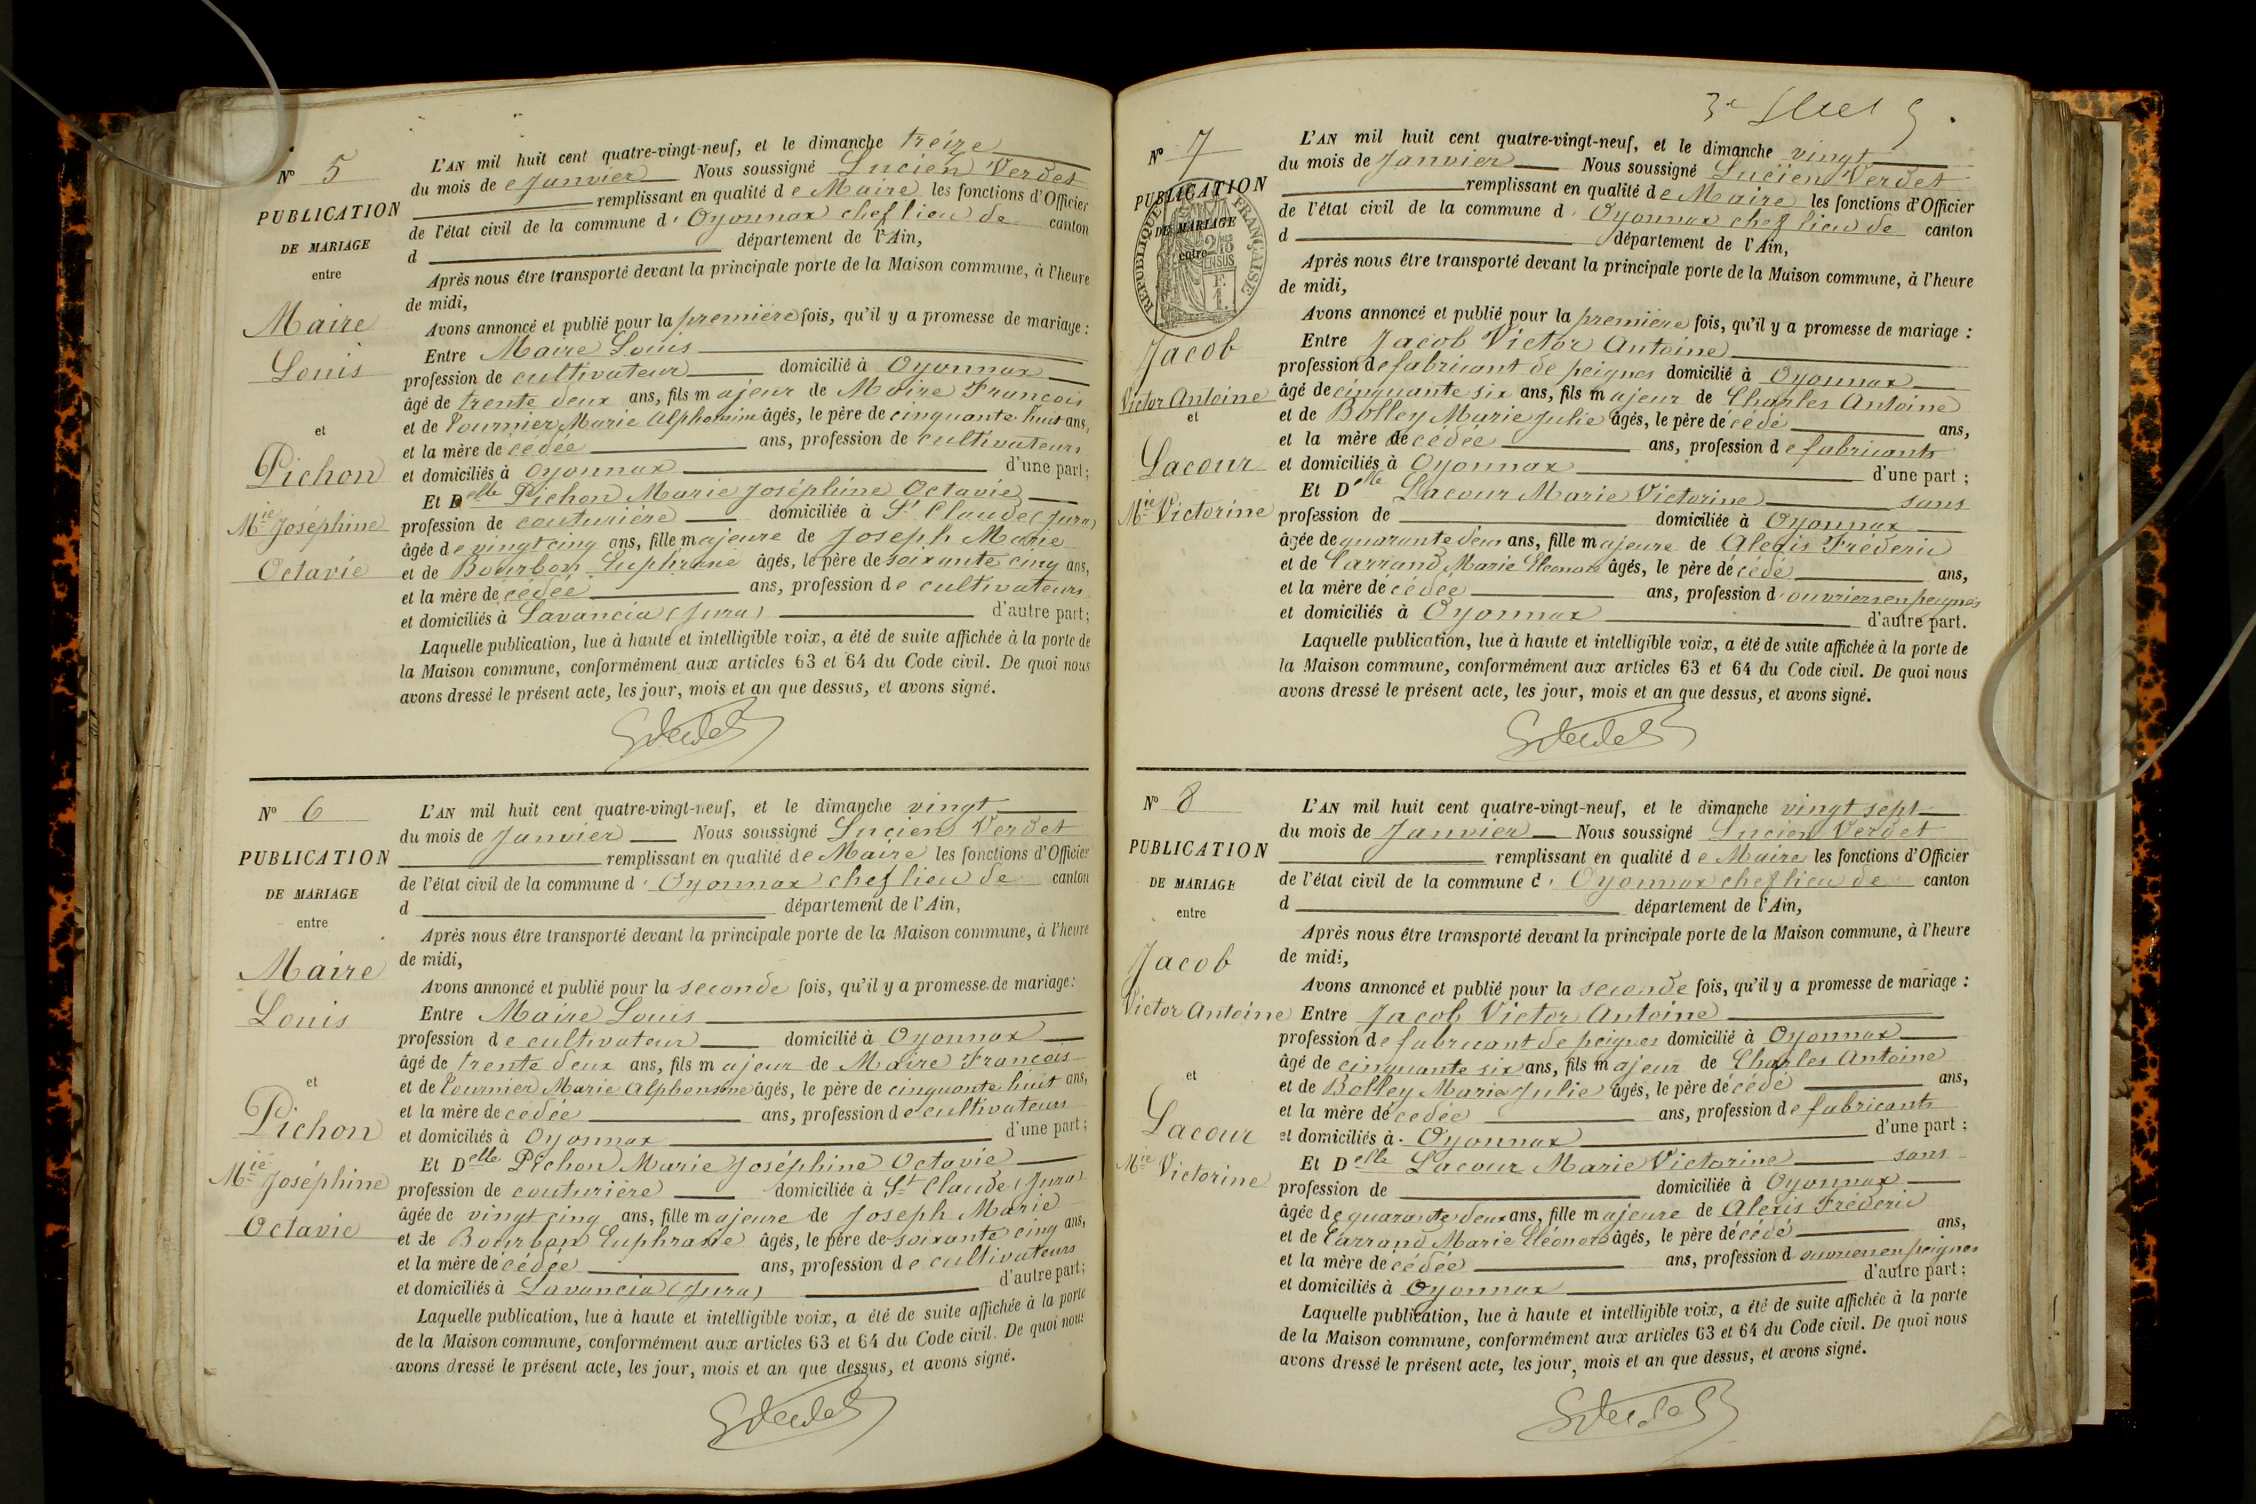 Nº 5
PUBLICATION
DE MARIAGE
entre
Maire
Louis
et
Pichon
Mie Joséphine
Octavie
L'AN mil huit cent quatre-vingt-neuf, et le dimanche treize
du mois de Janvier Nous soussigné Lucien Verdet
remplissant en qualité de Maire les fonctions d'Officier
de l'état civil de la commune d'Oyonnax chef lieu de canton
d département de l'Ain,
Après nous être transporté devant la principale porte de la Maison commune, à l'heure
de midi,
Avons annoncé et publié pour la première fois, qu'il y a promesse de mariage :
Entre Maire Louis
profession de cultivateur domicilié à Oyonnax
âgé de trente deux ans, fils majeur de Maire François
et de Tournier Marie Alphonsine âgés, le père de cinquante huit ans,
et la mère décédée ans, profession de cultivateurs
et domiciliés à Oyonnax d'une part;
Et Delle Pichon Marie Joséphine Octavie
profession de couturière domiciliée à St Claude (Jura)
âgée de vingt cinq ans, fille majeure de Joseph Marie
et de Bourbon Euphrasie âgés, le père de soixante cinq ans,
et la mère décédée ans, profession de cultivateurs
et domiciliés à Lavancia (Jura) d'autre part;
Laquelle publication, lue à haute et intelligible voix, a été de suite affichée à la porte de
la Maison commune, conformément aux articles 63 et 64 du Code civil. De quoi nous
avons dressé le présent acte, les jour, mois et an que dessus, et avons signé.
Nº 6
PUBLICATION
DE MARIAGE
entre
Maire
Louis
et
Pichon
Mie Joséphine
Octavie
L'AN mil huit cent quatre-vingt-neuf, et le dimanche vingt
du mois de Janvier Nous soussigné Lucien Verdet
remplissant en qualité de Maire les fonctions d'Officier
de l'état civil de la commune d'Oyonnax chef lieu de canton
d département de l'Ain,
Après nous être transporté devant la principale porte de la Maison commune, à l'heure
de midi,
Avons annoncé et publié pour la seconde fois, qu'il y a promesse de mariage :
Entre Maire Louis
profession de cultivateur domicilié à Oyonnax
âgé de trente deux ans, fils majeur de Maire François
et de Tournier Marie Alphonsine âgés, le père de cinquante huit ans,
et la mère décédée ans, profession de cultivateurs
et domiciliés à Oyonnax d'une part;
Et Delle Pichon Marie Joséphine Octavie
profession de couturière domiciliée à St Claude (Jura)
âgée de vingt cinq ans, fille majeure de Joseph Marie
et de Bourbon Euphrasie âgés, le père de soixante cinq ans,
et la mère décédée ans, profession de cultivateurs
et domiciliés à Lavancia (Jura) d'autre part;
Laquelle publication, lue à haute et intelligible voix, a été de suite affichée à la porte
de la Maison commune, conformément aux articles 63 et 64 du Code civil. De quoi nous
avons dressé le présent acte, les jour, mois et an que dessus, et avons signé.
Nº 7
PUBLICATION
DE MARIAGE
entre
RÉPUBLIQUE FRANÇAISE
Jacob
Victor Antoine
et
Lacour
Mie Victorine
L'AN mil huit cent quatre-vingt-neuf, et le dimanche vingt
du mois de Janvier Nous soussigné Lucien Verdet
remplissant en qualité de Maire les fonctions d'Officier
de l'état civil de la commune d'Oyonnax chef lieu de canton
d département de l'Ain,
Après nous être transporté devant la principale porte de la Maison commune, à l'heure
de midi,
Avons annoncé et publié pour la première fois, qu'il y a promesse de mariage :
Entre Jacob Victor Antoine
profession de fabricant de peignes domicilié à Oyonnax
âgé de cinquante six ans, fils majeur de Charles Antoine
et de Bolley Marie Julie âgés, le père décédé ans,
et la mère décédée ans, profession de fabricants
et domiciliés à Oyonnax d'une part ;
Et Delle Lacour Marie Victorine sans
profession de domiciliée à Oyonnax
âgée de quarante deux ans, fille majeure de Alexis Fréderic
et de Carrand Marie Eléonore âgés, le père décédé ans,
et la mère décédée ans, profession d'ouvriers en peignes
et domiciliés à Oyonnax d'autre part.
Laquelle publication, lue à haute et intelligible voix, a été de suite affichée à la porte de
la Maison commune, conformément aux articles 63 et 64 du Code civil. De quoi nous
avons dressé le présent acte, les jour, mois et an que dessus, et avons signé.
Nº 8
PUBLICATION
DE MARIAGE
entre
Jacob
Victor Antoine
et
Lacour
Mie Victorine
L'AN mil huit cent quatre-vingt-neuf, et le dimanche vingt sept
du mois de Janvier Nous soussigné Lucien Verdet
remplissant en qualité de Maire les fonctions d'Officier
de l'état civil de la commune d'Oyonnax chef lieu de canton
d département de l'Ain,
Après nous être transporté devant la principale porte de la Maison commune, à l'heure
de midi,
Avons annoncé et publié pour la seconde fois, qu'il y a promesse de mariage :
Entre Jacob Victor Antoine
profession de fabricant de peignes domicilié à Oyonnax
âgé de cinquante six ans, fils majeur de Charles Antoine
et de Bolley Marie Julie âgés, le père décédé ans,
et la mère décédée ans, profession de fabricants
et domiciliés à Oyonnax d'une part ;
Et Delle Lacour Marie Victorine sans
profession de domiciliée à Oyonnax
âgée de quarante deux ans, fille majeure de Alexis Fréderic
et de Carrand Marie Eléonore âgés, le père décédé ans,
et la mère décédée ans, profession d'ouvriers en peignes
et domiciliés à Oyonnax d'autre part ;
Laquelle publication, lue à haute et intelligible voix, a été de suite affichée à la porte
de la Maison commune, conformément aux articles 63 et 64 du Code civil. De quoi nous
avons dressé le présent acte, les jour, mois et an que dessus, et avons signé.